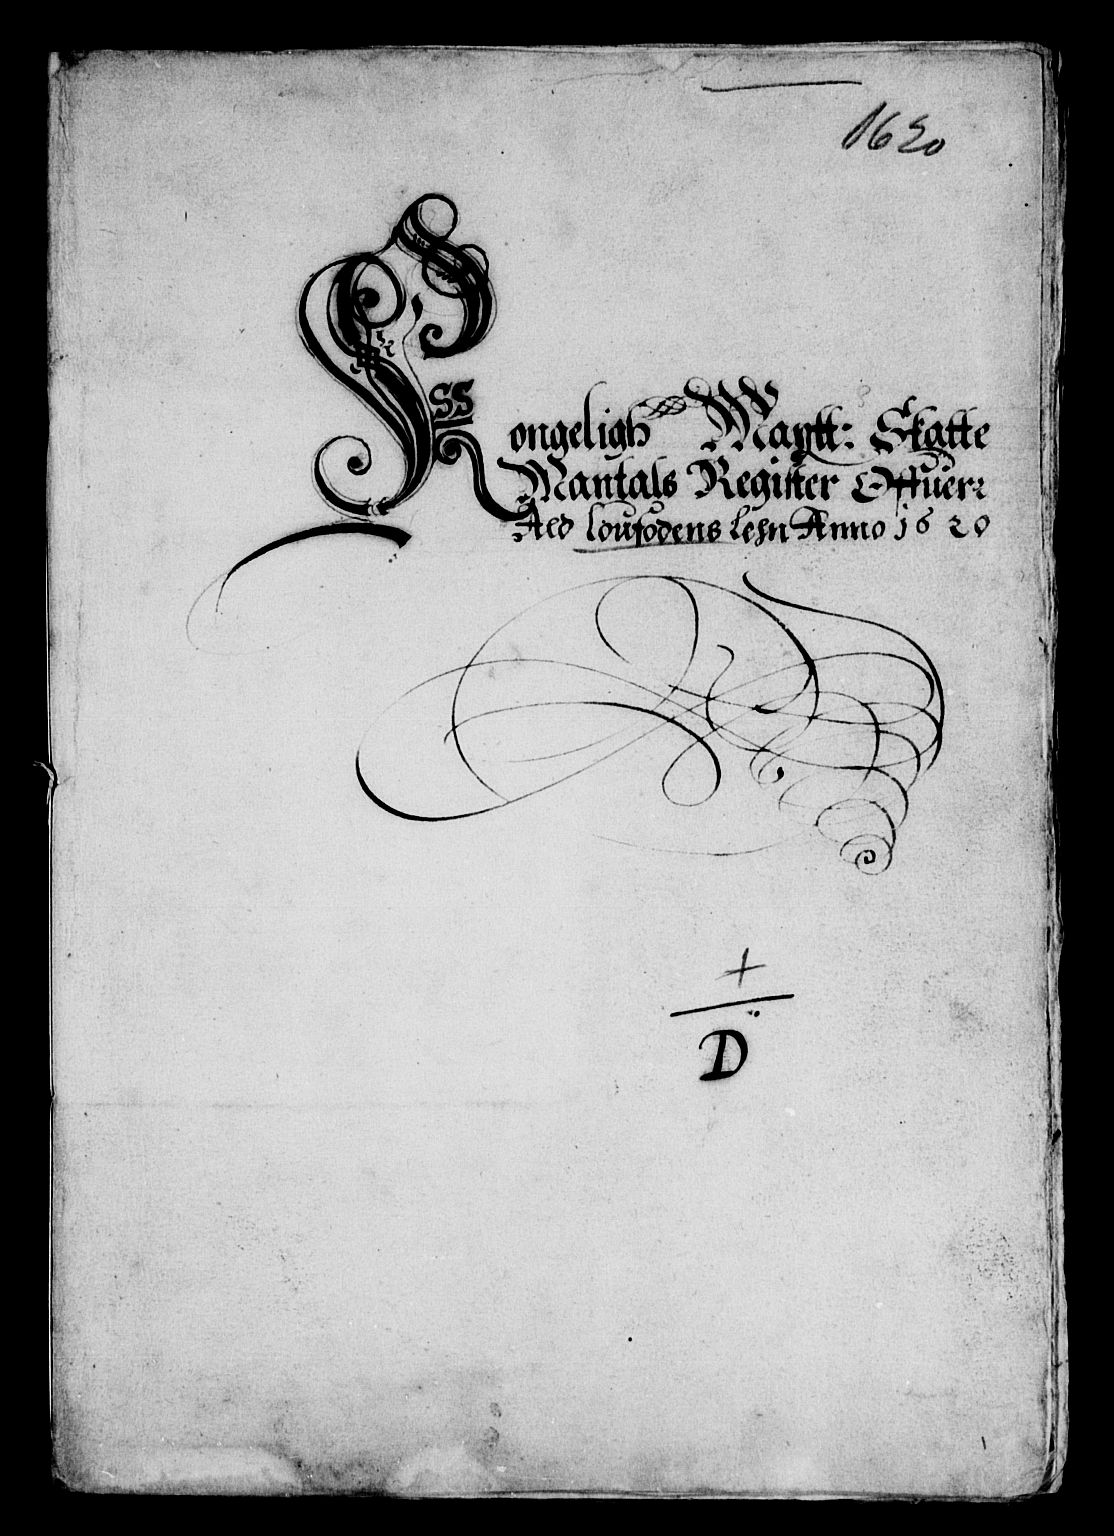 1620
Kongeligh Maytt: Skatte
Mantals Register Offuer
Ald loufodens lehn Anno 1620
+
D